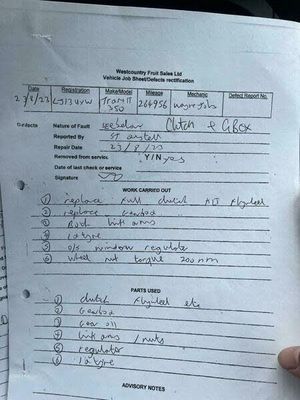 Westcountry Fruit Sales Ltd
Vehicle Job Sheet/Defects rectification
Date Registration Make/Model Mileage Mechanic Defect Report No.
Transit 350 264956
Defects Nature of Fault Clutch + GBox
Reported By St austell
Repair Date 23/8/23
Removed from service Y/N yes
Date of last check or service
Signature
WORK CARRIED OUT
① replace full clutch KIT flywheel
② replace Gearbox
③ Both link arms
④ 1a tyre
⑤ o/s window regulator
⑥ Wheel nut torque 200nm
PARTS USED
① clutch flywheel etc
② Gearbox
③ Gear oil
④ link arms / nuts
⑤ regulator
⑥ 1a tyre
ADVISORY NOTES